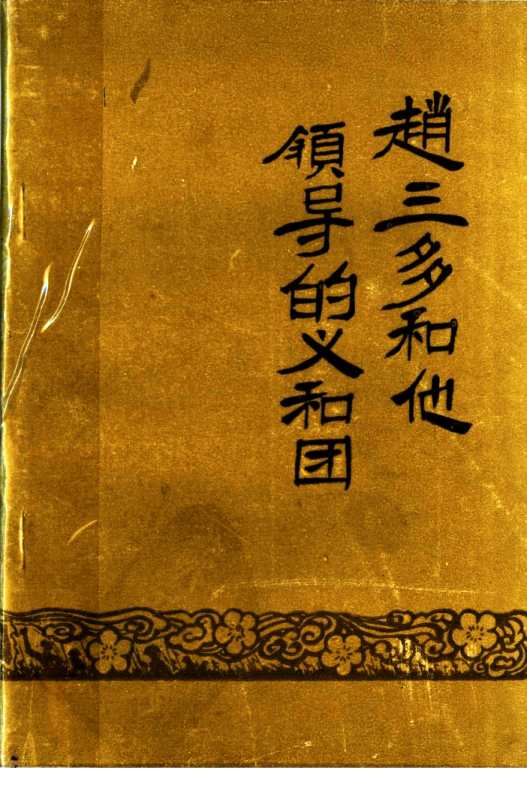 趙三多和他
領导的义和团